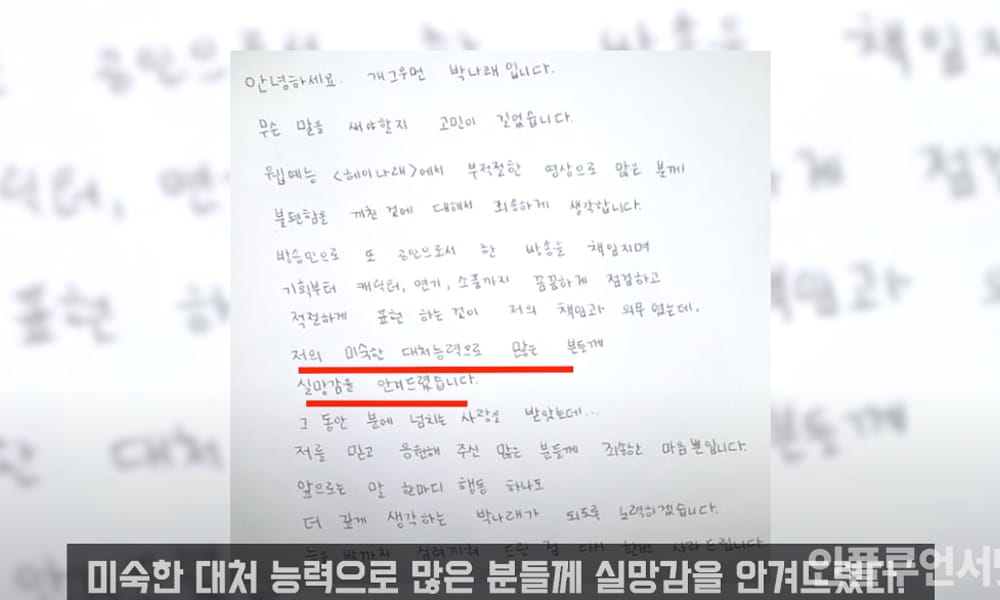 안녕하세요. 개그우먼 박나래입니다.
무슨 말을 써야할지 고민이 길었습니다.
웹예능 <헤이나래>에서 부적절한 영상으로 많은 분께
불편함을 끼친 것에 대해서 죄송하게 생각합니다.
방송인으로 또 공인으로서 한 방송을 책임지며
기획부터 캐릭터, 연기, 소품까지 꼼꼼하게 점검하고
적절하게 표현 하는것이 저의 책임과 의무 였는데,
저의 미숙한 대처능력으로 많은 분들께
실망감을 안겨드렸습니다.
그 동안 분에 넘치는 사랑을 받았는데...
저를 믿고 응원해 주신 많은 분들께 죄송한 마음뿐입니다.
앞으로는 말 한마디 행동 하나도
더 깊게 생각하는 박나래가 되도록 노력하겠습니다.
늦은 밤까지 심려끼쳐 드린 점 다시 한번 사과드립니다
미숙한 대처 능력으로 많은 분들께 실망감을 안겨드렸다.
인플루언서